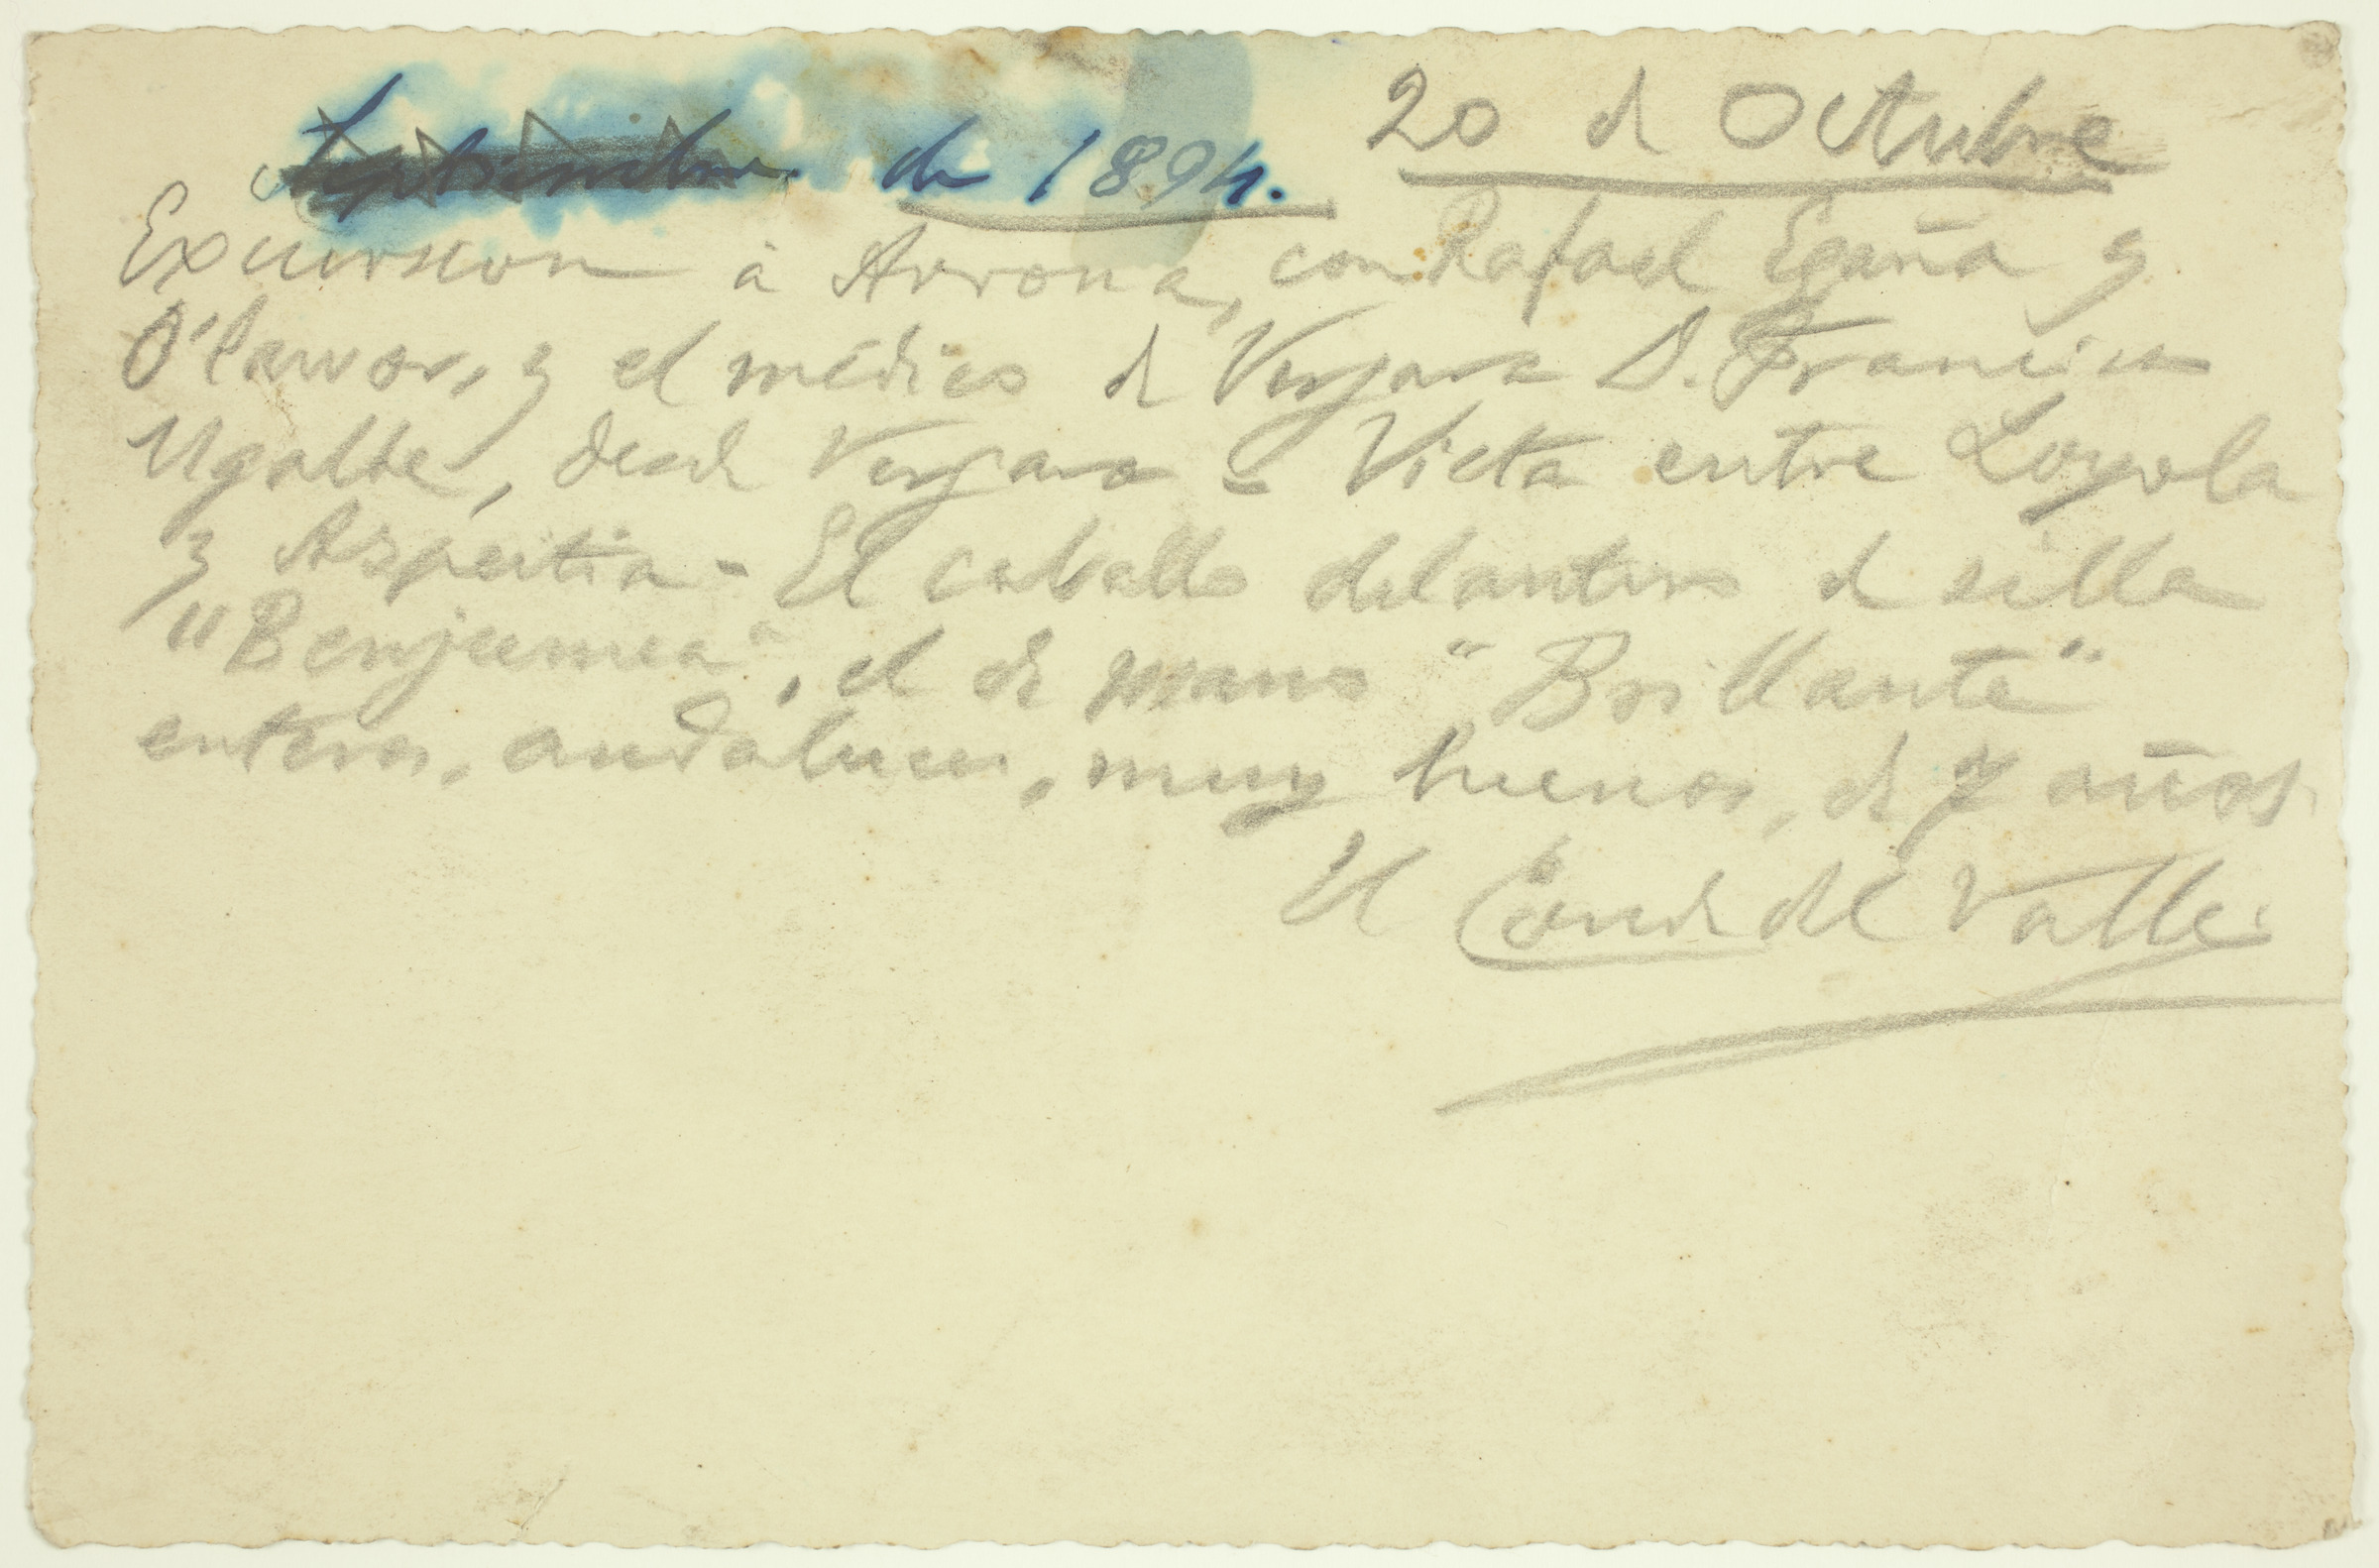 Septiembre de 1894. 20 de Octubre
Excursion á Arrona, con Rafael Egaña y
O'lawor, y el médico de Vergara D. Francisco
Ugalde, desde Vergara - Vista entre Loyola
y Azpeitia - El caballo delantero de silla
"Benjumea", el de mano "Brillante"
enteros, andaluces, muy buenos, de 7 años.
El Conde del Valle